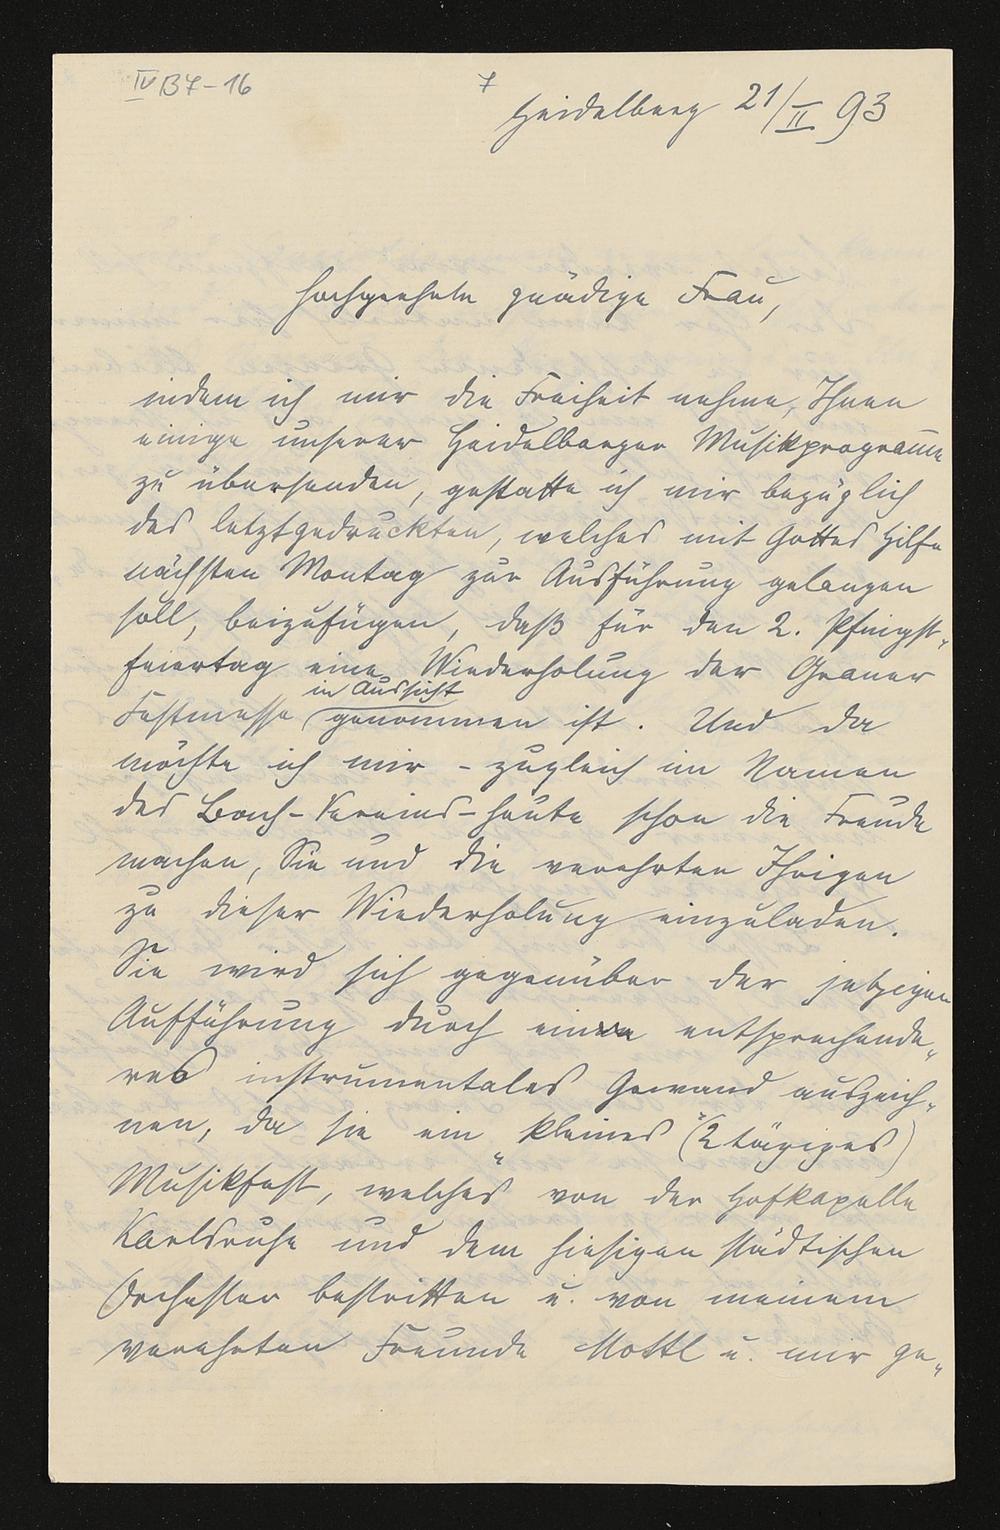 IV B 7-16
7
Heidelberg 21/II 93
Hochgeehrte gnädige Frau,
indem ich mir die Freiheit nehme, Ihnen
einige unserer Heidelberger Musikprogram̅e
zu übersenden, gestatte ich mir bezüglich
des letztgedruckten, welches mit Gottes Hilfe
nächsten Montag zur Ausführung gelangen
soll, beizufügen, daß für den 2. Pfingst-
feiertag eine Wiederholung der Graner
in Aussicht
Festmesse genommen ist. Und da
möchte ich mir - zugleich im Namen
des Bach-Vereins - heute schon die Freude
machen, Sie und die verehrten Ihrigen
zu dieser Wiederholung einzuladen.
Sie wird sich gegenüber der jetzigen
Aufführung durch ein entsprechende-
res instrumentales Gewand auszeich-
nen, da sie ein „kleines" (2 tägiges)
Musikfest, welches von der Hofkapelle
Karlsruhe und dem hiesigen städtischen
Orchester bestritten u. von meinem
verehrten Freunde Mottl u. mir ge-